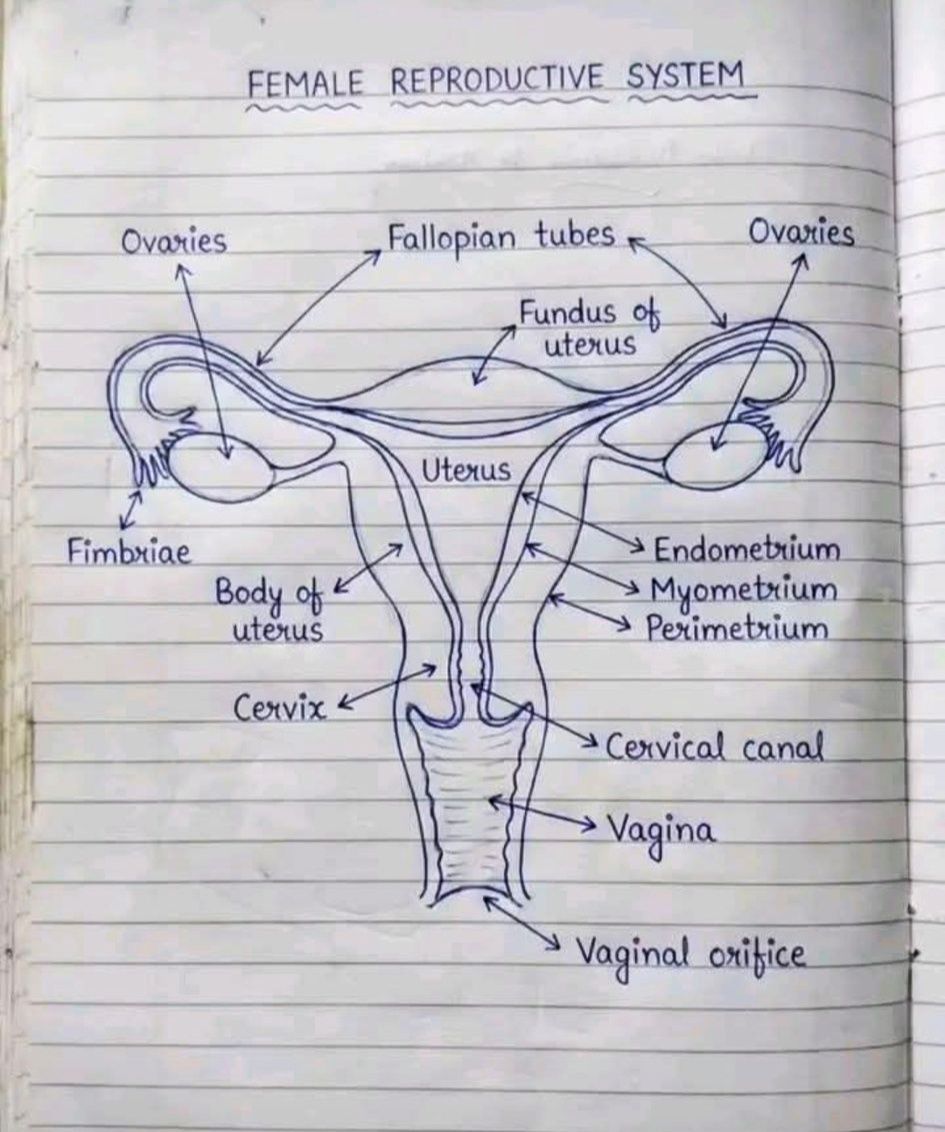 FEMALE REPRODUCTIVE SYSTEM
Ovaries
Fallopian tubes
Ovaries
Fundus of
uterus
Uterus
Fimbriae
Endometrium
Body of
uterus
Myometrium
Perimetrium
Cervix
Cervical canal
Vagina
Vaginal orifice